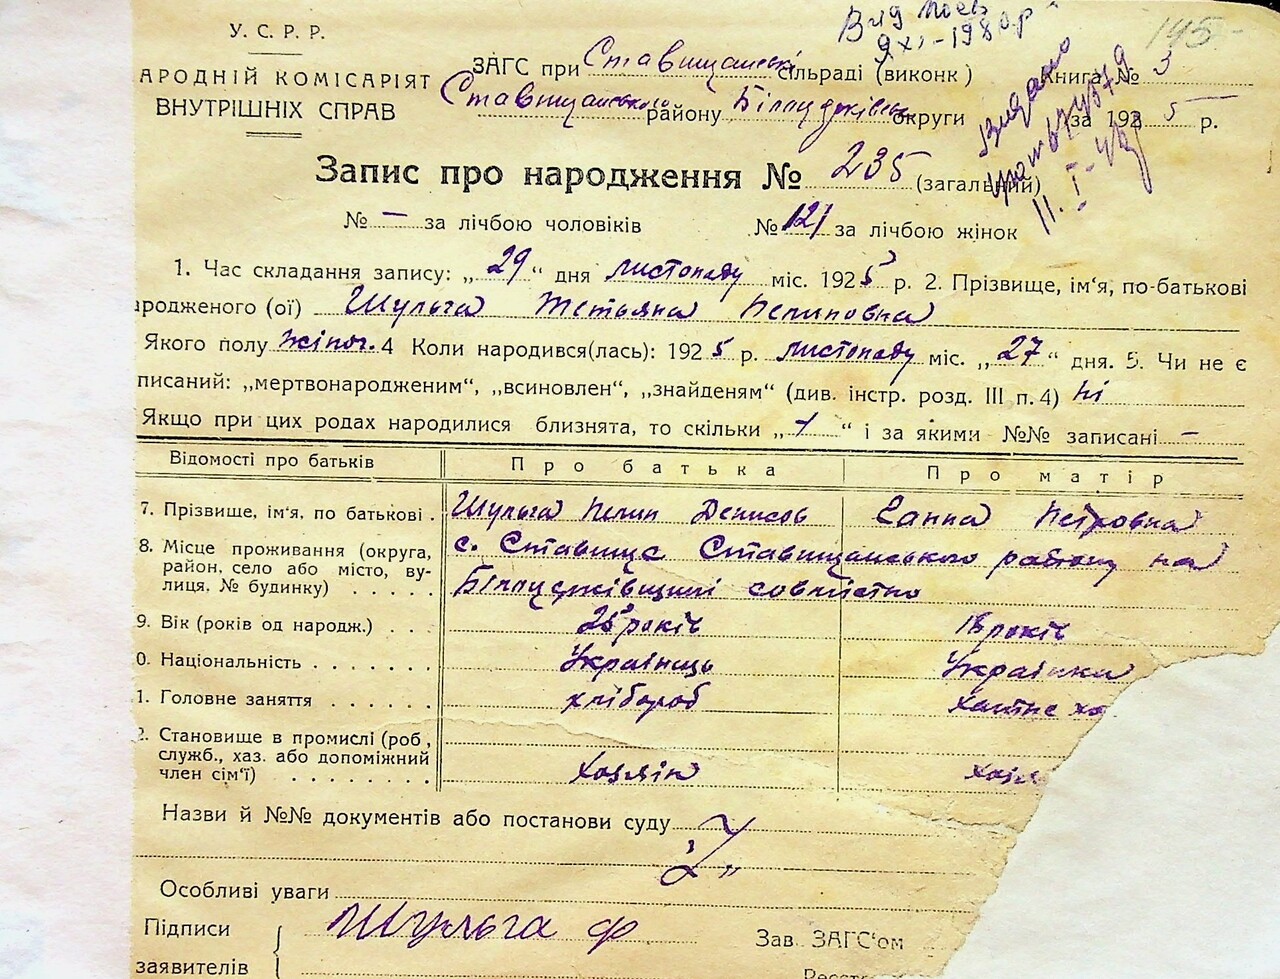 У. С. Р. Р.
АРОДНІЙ КОМІСАРІЯТ
ВНУТРІШНІХ СПРАВ
195
9 XI-1980р
ЗАГС при Ставищанські сільраді (виконк) Книга № 3
Ставищанського району округи (за 1925 р.
Видано
11.I-49
Запис про народження № 235 (загальний)
№ — за лічбою чоловіків № 121 за лічбою жінок
1. Час складання запису: „29“ дня листопаду міс. 1925 р. 2. Прізвище, ім'я, по-батькові
ародженого (ої) Шульга Тетьяна Пелиповна
Якого полу жіноч. 4 Коли народився(лась): 1925 р. листопаду міс. „27“ дня. 5. Чи не є
писаний: „мертвонародженим“, „всиновлен“, „знайденям“ (див. інстр. розд. III п. 4) ні
Якщо при цих родах народилися близнята, то скільки „ “ і за якими №№ записані —
Відомості про батьків Про батька Про матір
7. Прізвище, ім'я, по батькові . Шульга Пелип Денисов Ганна Петровна
8. Місце проживання (округа, район, село або місто, вулиця, № будинку) . . . . .
с. Ставище Ставищанського району на
Білоцерківщині совмістно
9. Вік (років од народж.) . . . 25 років 18 років
0. Національність . . . . . . . Українець Українка
1. Головне заняття . . . . . . хлібороб хатнє хо
2. Становище в промислі (роб., служб., хаз. або допоміжний член сім'ї) . . . . . . . . Хазяін хазя
Назви й №№ документів або постанови суду
Особливі уваги
Підписи Шульга Ф Зав. ЗАГС'ом
заявителів Реєстр